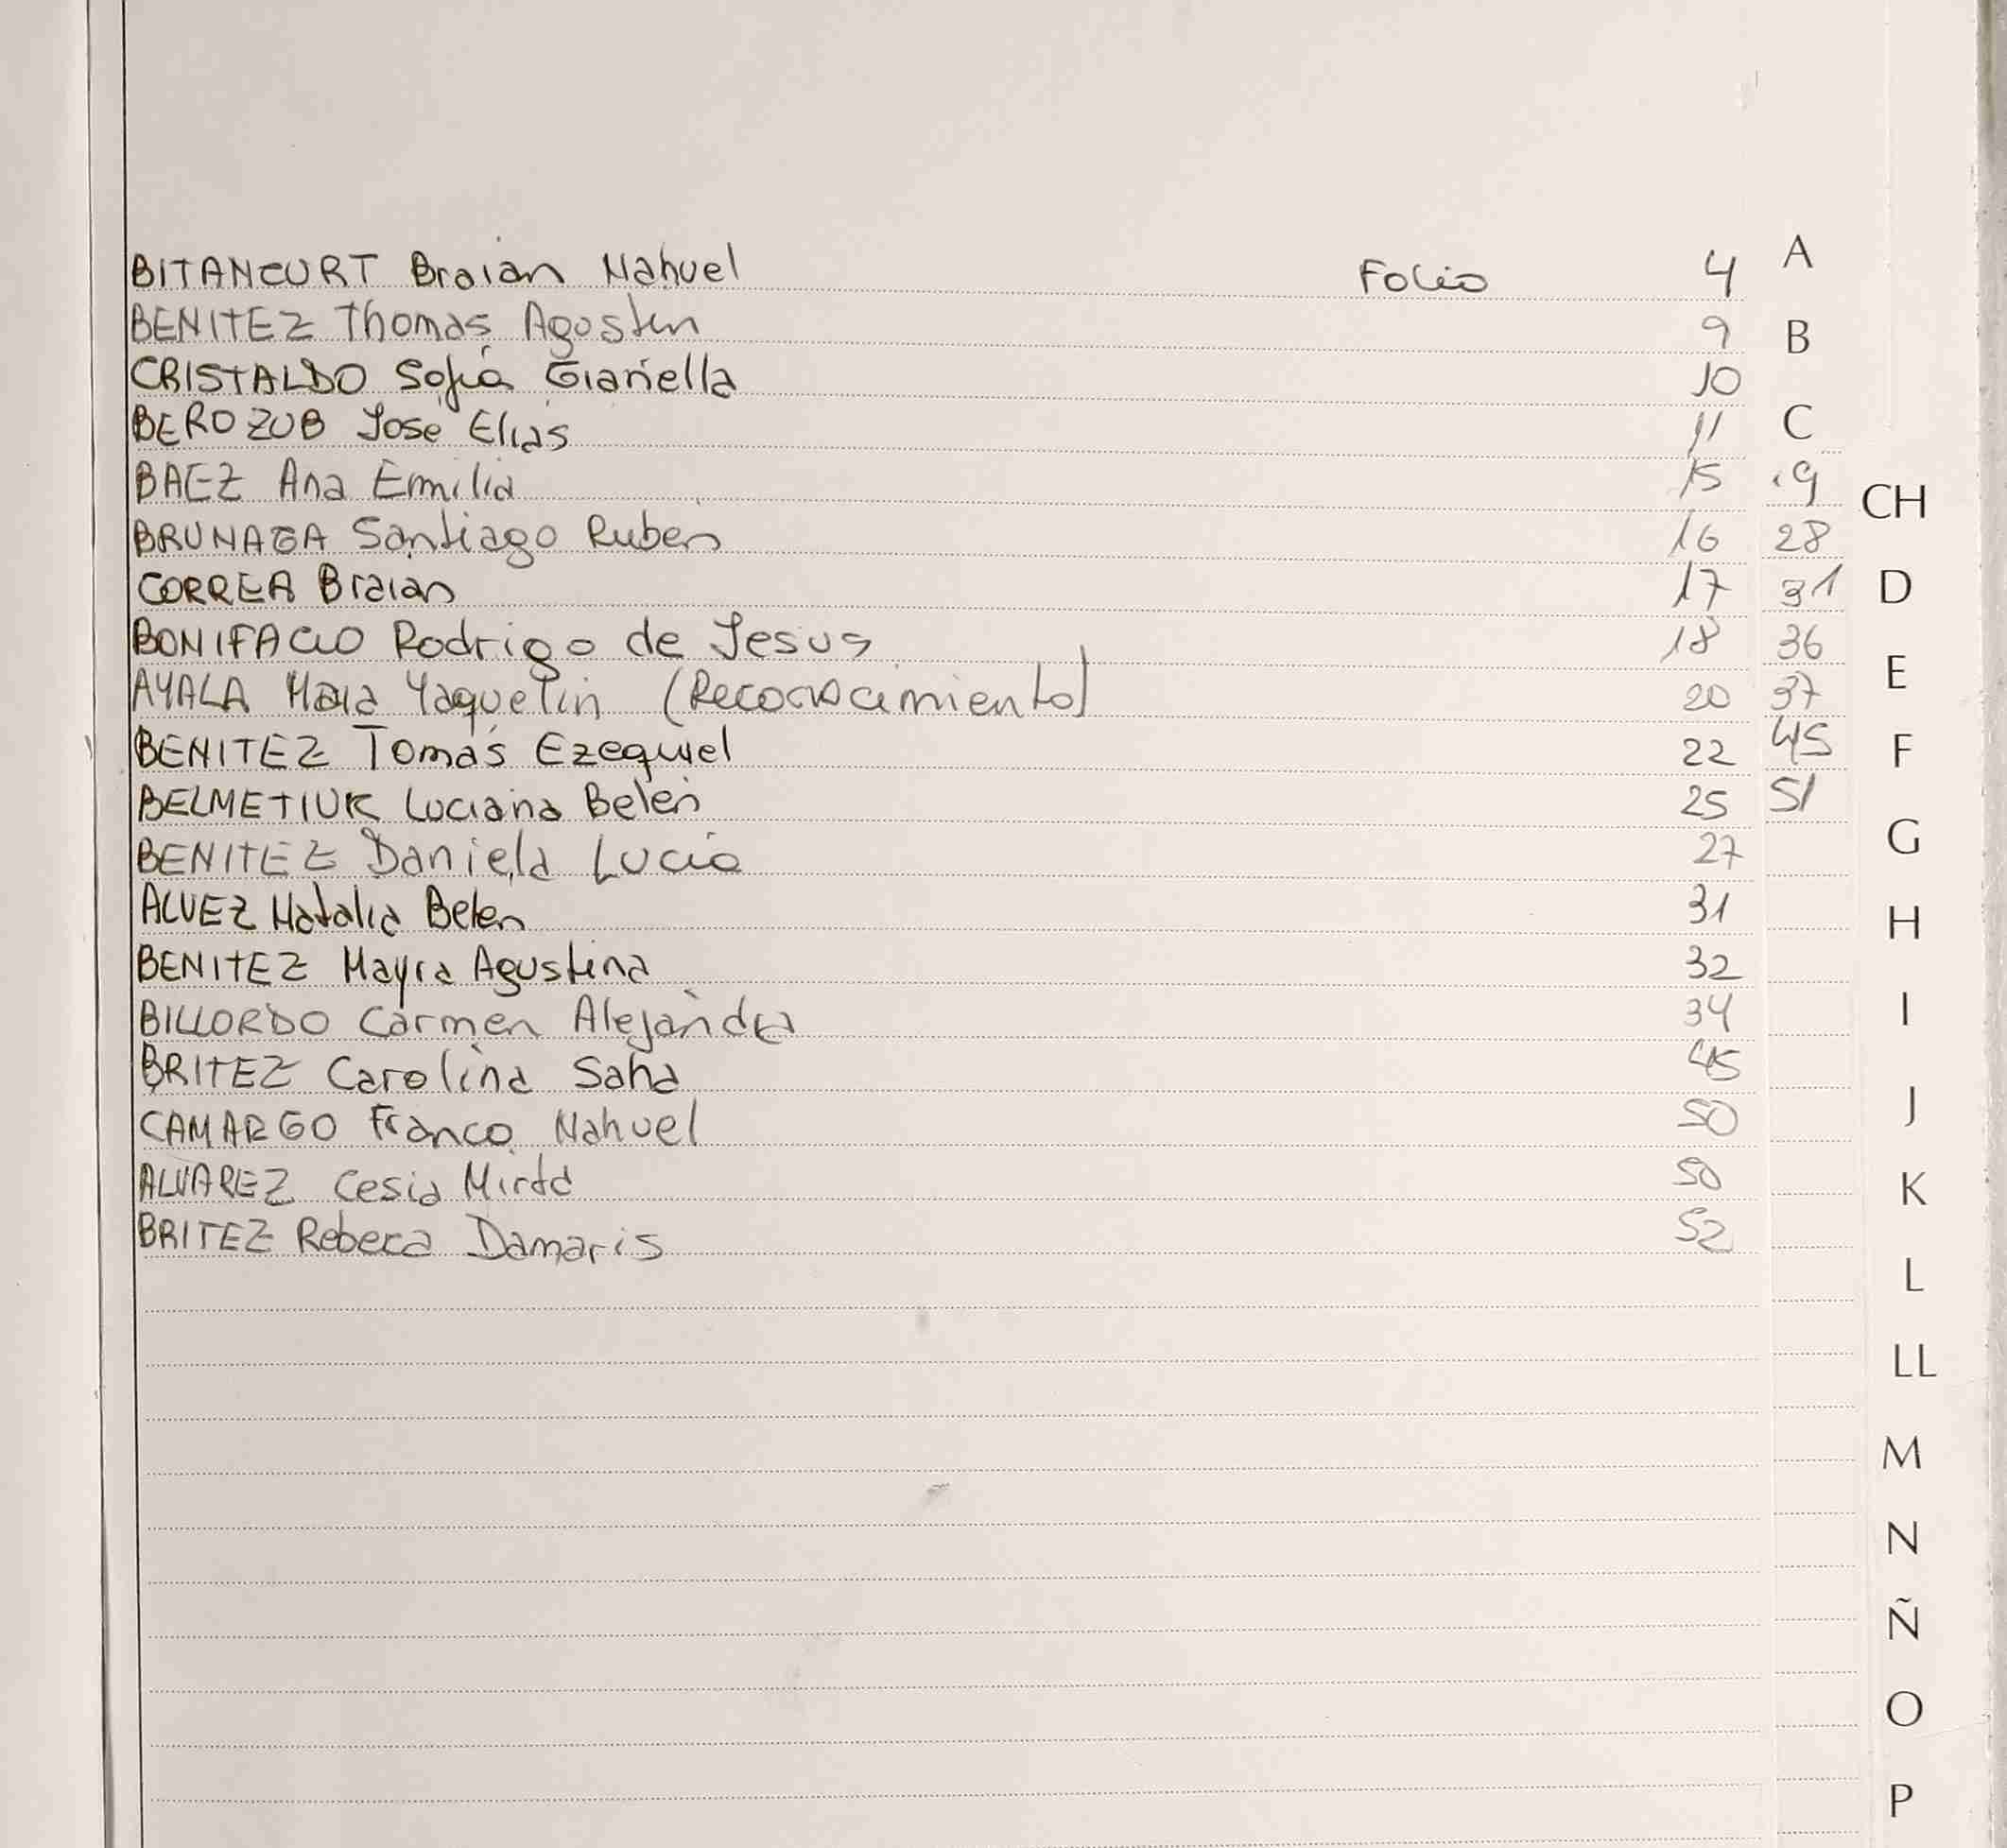 BITANCURT Braian Nahuel Folio 4 A
BENITEZ Thomas Agostin 9 B
CRISTALDO Sofia Giariella 10
BEROZUB Jose Elias 11 C
BAEZ Ana Emilia 15 19 CH
BRUNAGA Santiago Ruben 16 28
CORREA Braian 17 31 D
BONIFACIO Rodrigo de Jesus 18 36
AYALA Maia Yaquelin (Reconocimiento) 20 37 E
BENITEZ Tomas Ezequiel 22 45 F
BELMETIUK Luciana Belen 25 51
BENITEZ Daniela Lucia 27 G
ALVEZ Natalia Belen 31 H
BENITEZ Mayra Agustina 32
BILLORDO Carmen Alejandra 34 I
BRITEZ Carolina 45
CAMARGO Franco Nahuel 50 J
ALVAREZ Cesia Mirta 50 K
BRITEZ Rebeca Damaris 52
L
LL
M
N
Ñ
O
P